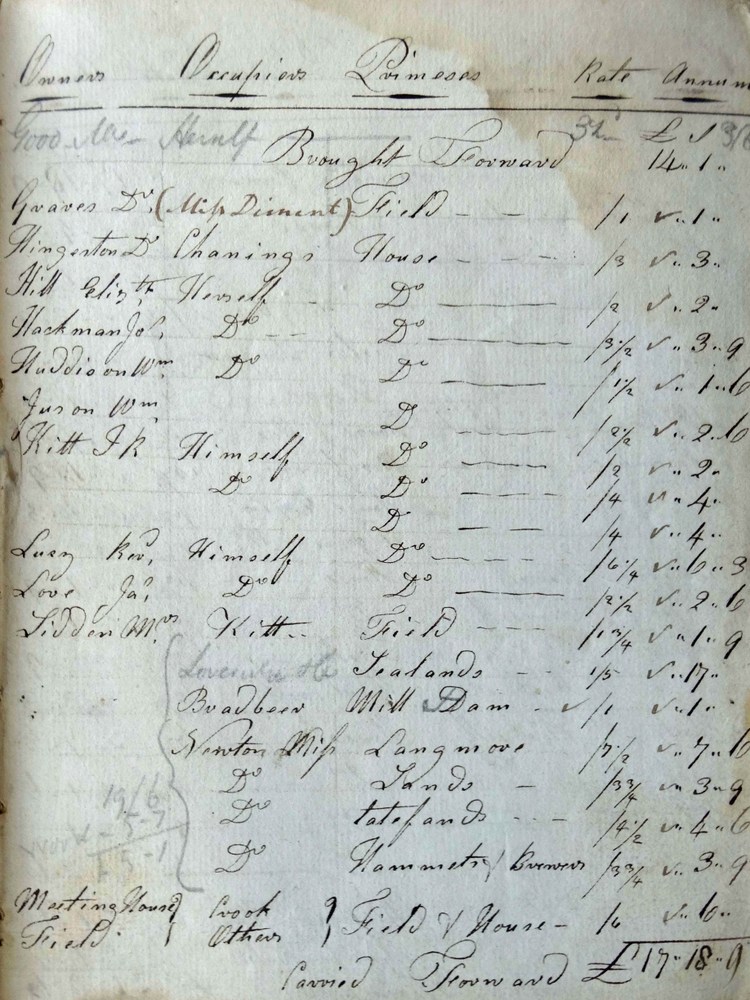 Owners Occupiers Primeses Rate Annum
Good Mrs Herself 3/6
Brought Forward 14 " 1 "
Graves Dr. (Miss Diment) Field - - /1 ✓ " 1 "
Hingerton Dr Chanings House - - - - /3 ✓ " 3 "
Hill Elizth. Herself - Do /2 ✓ " 2 "
Hackman Jos. Do - - Do /3 1/2 ✓ " 3 " 9
Huddison Wm Do Do /1 1/2 ✓ " 1 " 6
Juson Wm D /2 1/2 ✓ " 2 " 6
Kitt I K Himself Do /2 ✓ " 2 "
Do Do /4 " 4 "
D /4 ✓ " 4 "
Lucy Revd. Himself Do /6 1/4 ✓ " 6 " 3
Love Jas. Do Do /2 1/2 ✓ " 2 " 6
Lidden Mrs Kitt - Field - - - /1 3/4 ✓ " 1 " 9
Sealands - - 1/5 ✓ " 17 "
Bradbeer Mill Dam - ✓ /1 ✓ " 1 "
Newton Miss Langmore /7 1/2 ✓ " 7 " 6
Do Sands - /3 3/4 " 3 " 9
Do tatepands - - - /4 1/2 ✓ " 4 " 6
Do Hammets / Brewers /3 3/4 ✓ " 3 " 9
19/6
Work - 5-7
1 5-1
Meeting House } Crook } Field & House - /6 ✓ " 6 "
Field } Others }
Carried Forward £17 " 18 " 9